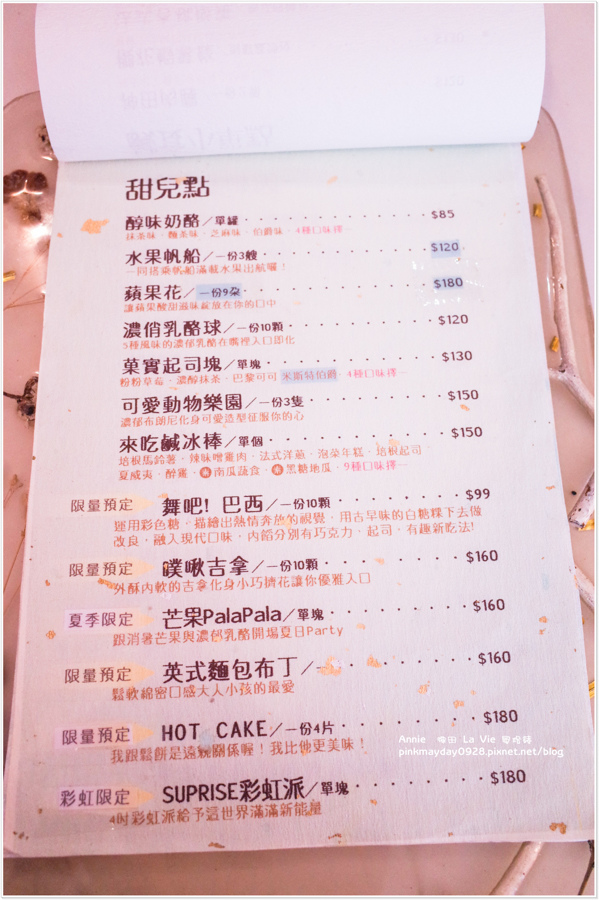 甜兒點
醇味奶酪／單罐 $85
抹茶味．麵茶味．芝麻味．伯爵味．4種口味擇一
水果帆船／一份3艘 $120
一同搭乘帆船滿載水果出航囉！
蘋果花／一份9朵 $180
讓蘋果酸甜滋味綻放在你的口中
濃俏乳酪球／一份10顆 $120
5種風味的濃郁乳酪在嘴裡入口即化
菓實起司塊／單塊 $130
粉粉草莓．濃醇抹茶．巴黎可可．米斯特伯爵．4種口味擇一
可愛動物樂園／一份3隻 $150
濃郁布朗尼化身可愛造型征服你的心
來吃鹹冰棒／單個 $150
培根馬鈴薯．辣味噌雞肉．法式洋蔥．泡菜年糕．培根起司
夏威夷．醉雞．南瓜蔬食．黑糖地瓜．9種口味擇一
限量預定 舞吧! 巴西／一份10顆 $99
運用彩色糖，描繪出熱情奔放的視覺，用古早味的白糖粿下去做
改良，融入現代口味，內餡分別有巧克力、起司，有趣新吃法!
限量預定 噗啾吉拿／一份10顆 $160
外酥內軟的吉拿化身小巧擠花讓你優雅入口
夏季限定 芒果PalaPala／單塊 $160
跟消暑芒果與濃郁乳酪開場夏日Party
限量預定 英式麵包布丁／ $160
鬆軟綿密口感大人小孩的最愛
限量預定 HOT CAKE／一份4片 $180
我跟鬆餅是遠親關係喔！我比他更美味！
彩虹限定 SUPRISE彩虹派／單塊 $180
4吋彩虹派給予這世界滿滿新能量
Annie La Vie
pinkmayday0928.pixnet.net/blog